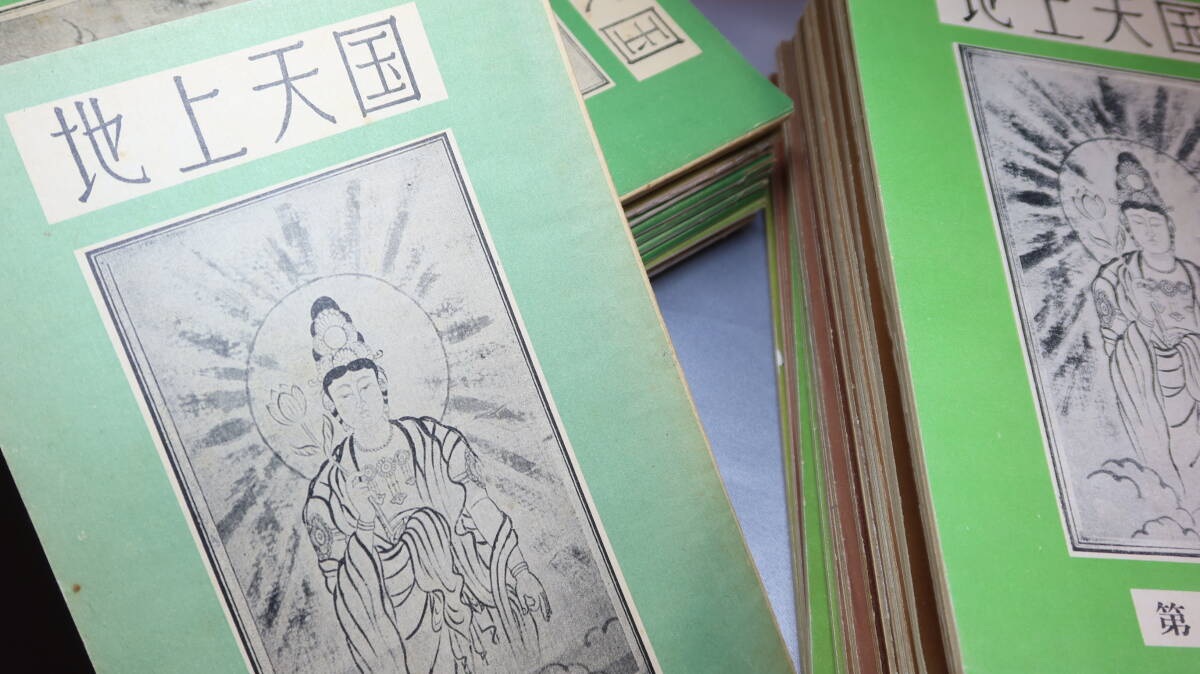 地上天国
国
地上天国
第